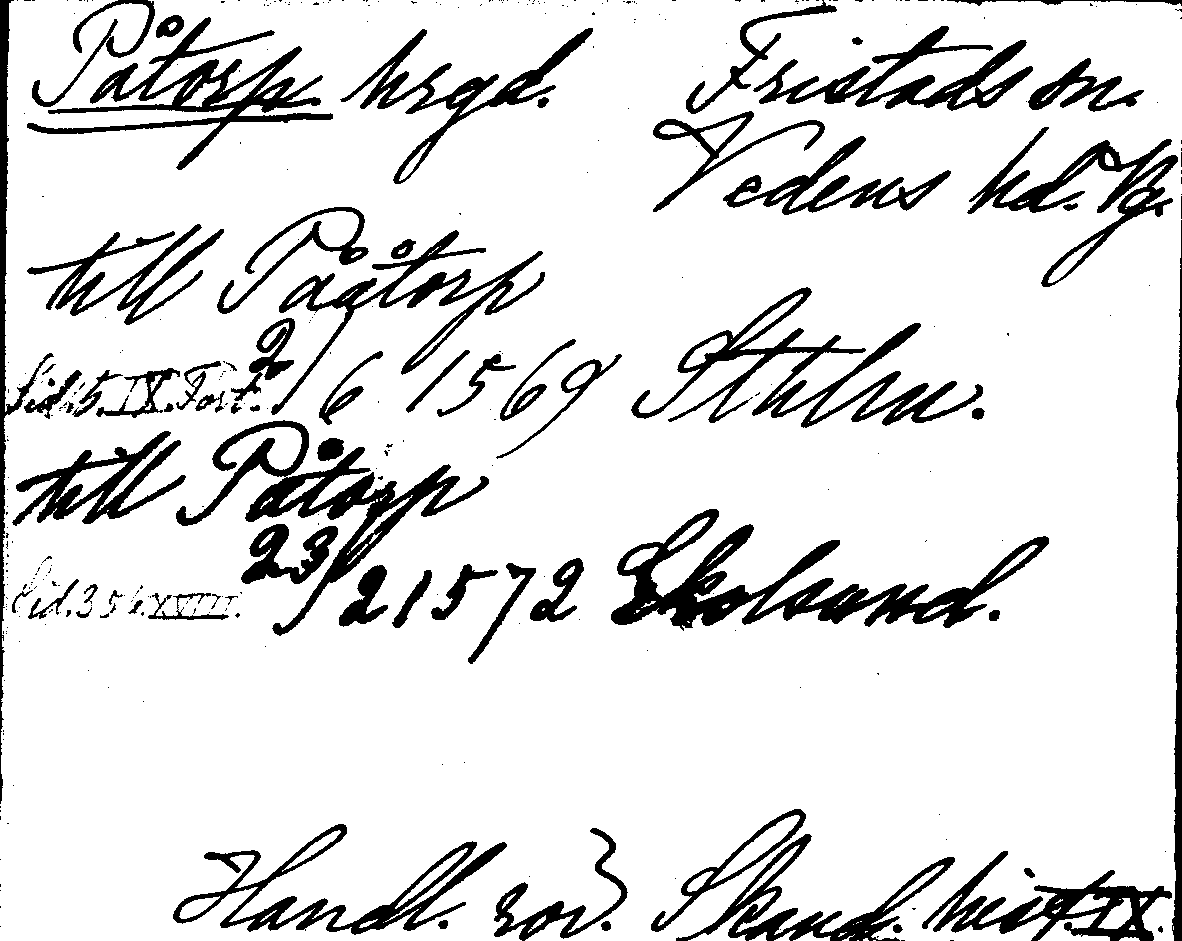 Påtorp. hrgd. Fristads sn.
Vedens hd. Vg.
till Pååtorp
Sid. 5. IX. Fort. 2/6 1569 Sthlm.
till Påtorp
Sid. 356. XVIII. 23/2 1572 Ekolsund.
Handl. rör. Skand. hist. IX.